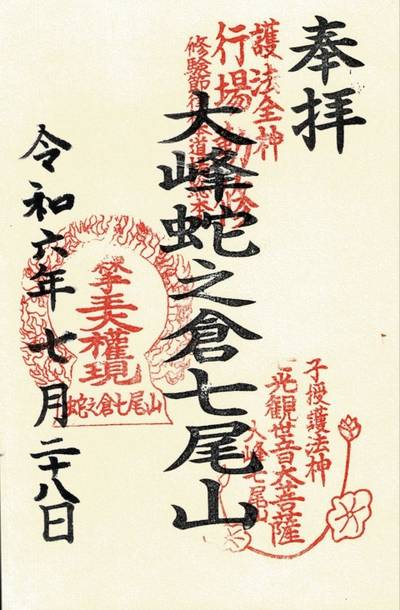 奉拝
護法全神
行場
大峰蛇之倉七尾山
子授護法神
光観世音大菩薩
大峰七尾山
大權現
蛇之倉七尾山
令和六年七月二十八日